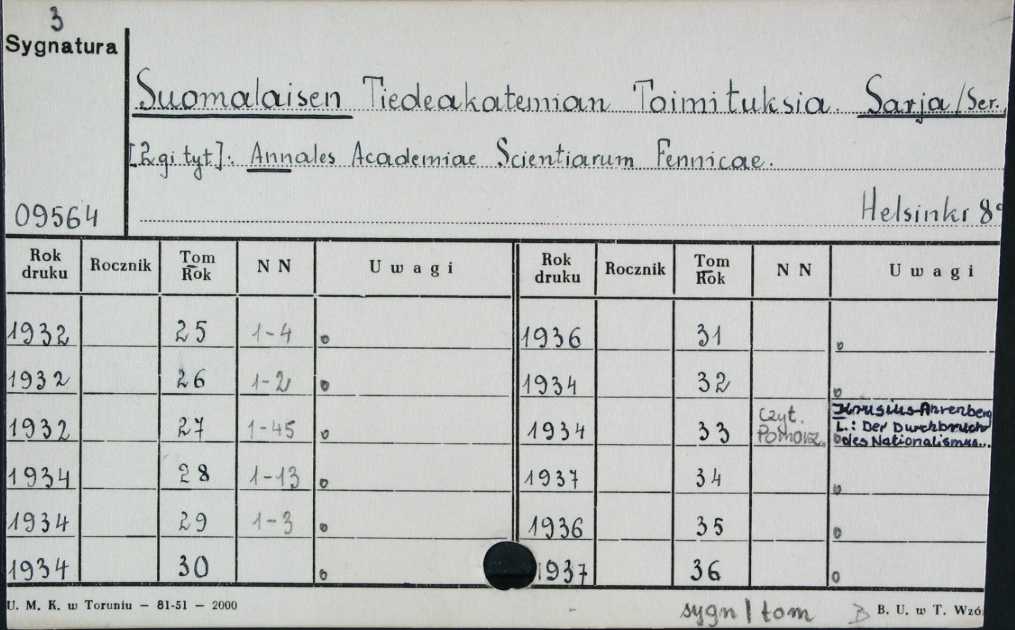 3
Sygnatura
Suomalaisen Tiedeakatemian Toimituksia. Sarja/Ser.,
[2gi tyt]: Annales Academiae Scientiarum Fennicae.
09564 Helsinki 8°
Rok druku Rocznik Tom Rok N N Uwagi Rok druku Rocznik Tom Rok N N Uwagi
1932 25 1-4 o 1936 31 o
1932 26 1-2 o 1934 32 o
1932 27 1-45 o 1934 33 Czyt. Pomorz. o Krusius-Ahrenberg L.: Der Durchbruch des Nationalismus...
1934 28 1-13 o 1937 34 o
1934 29 1-3 o 1936 35 o
1934 30 o 1937 36 o
U. M. K. w Toruniu — 81-51 — 2000 sygn/tom B B. U. w T. Wzó